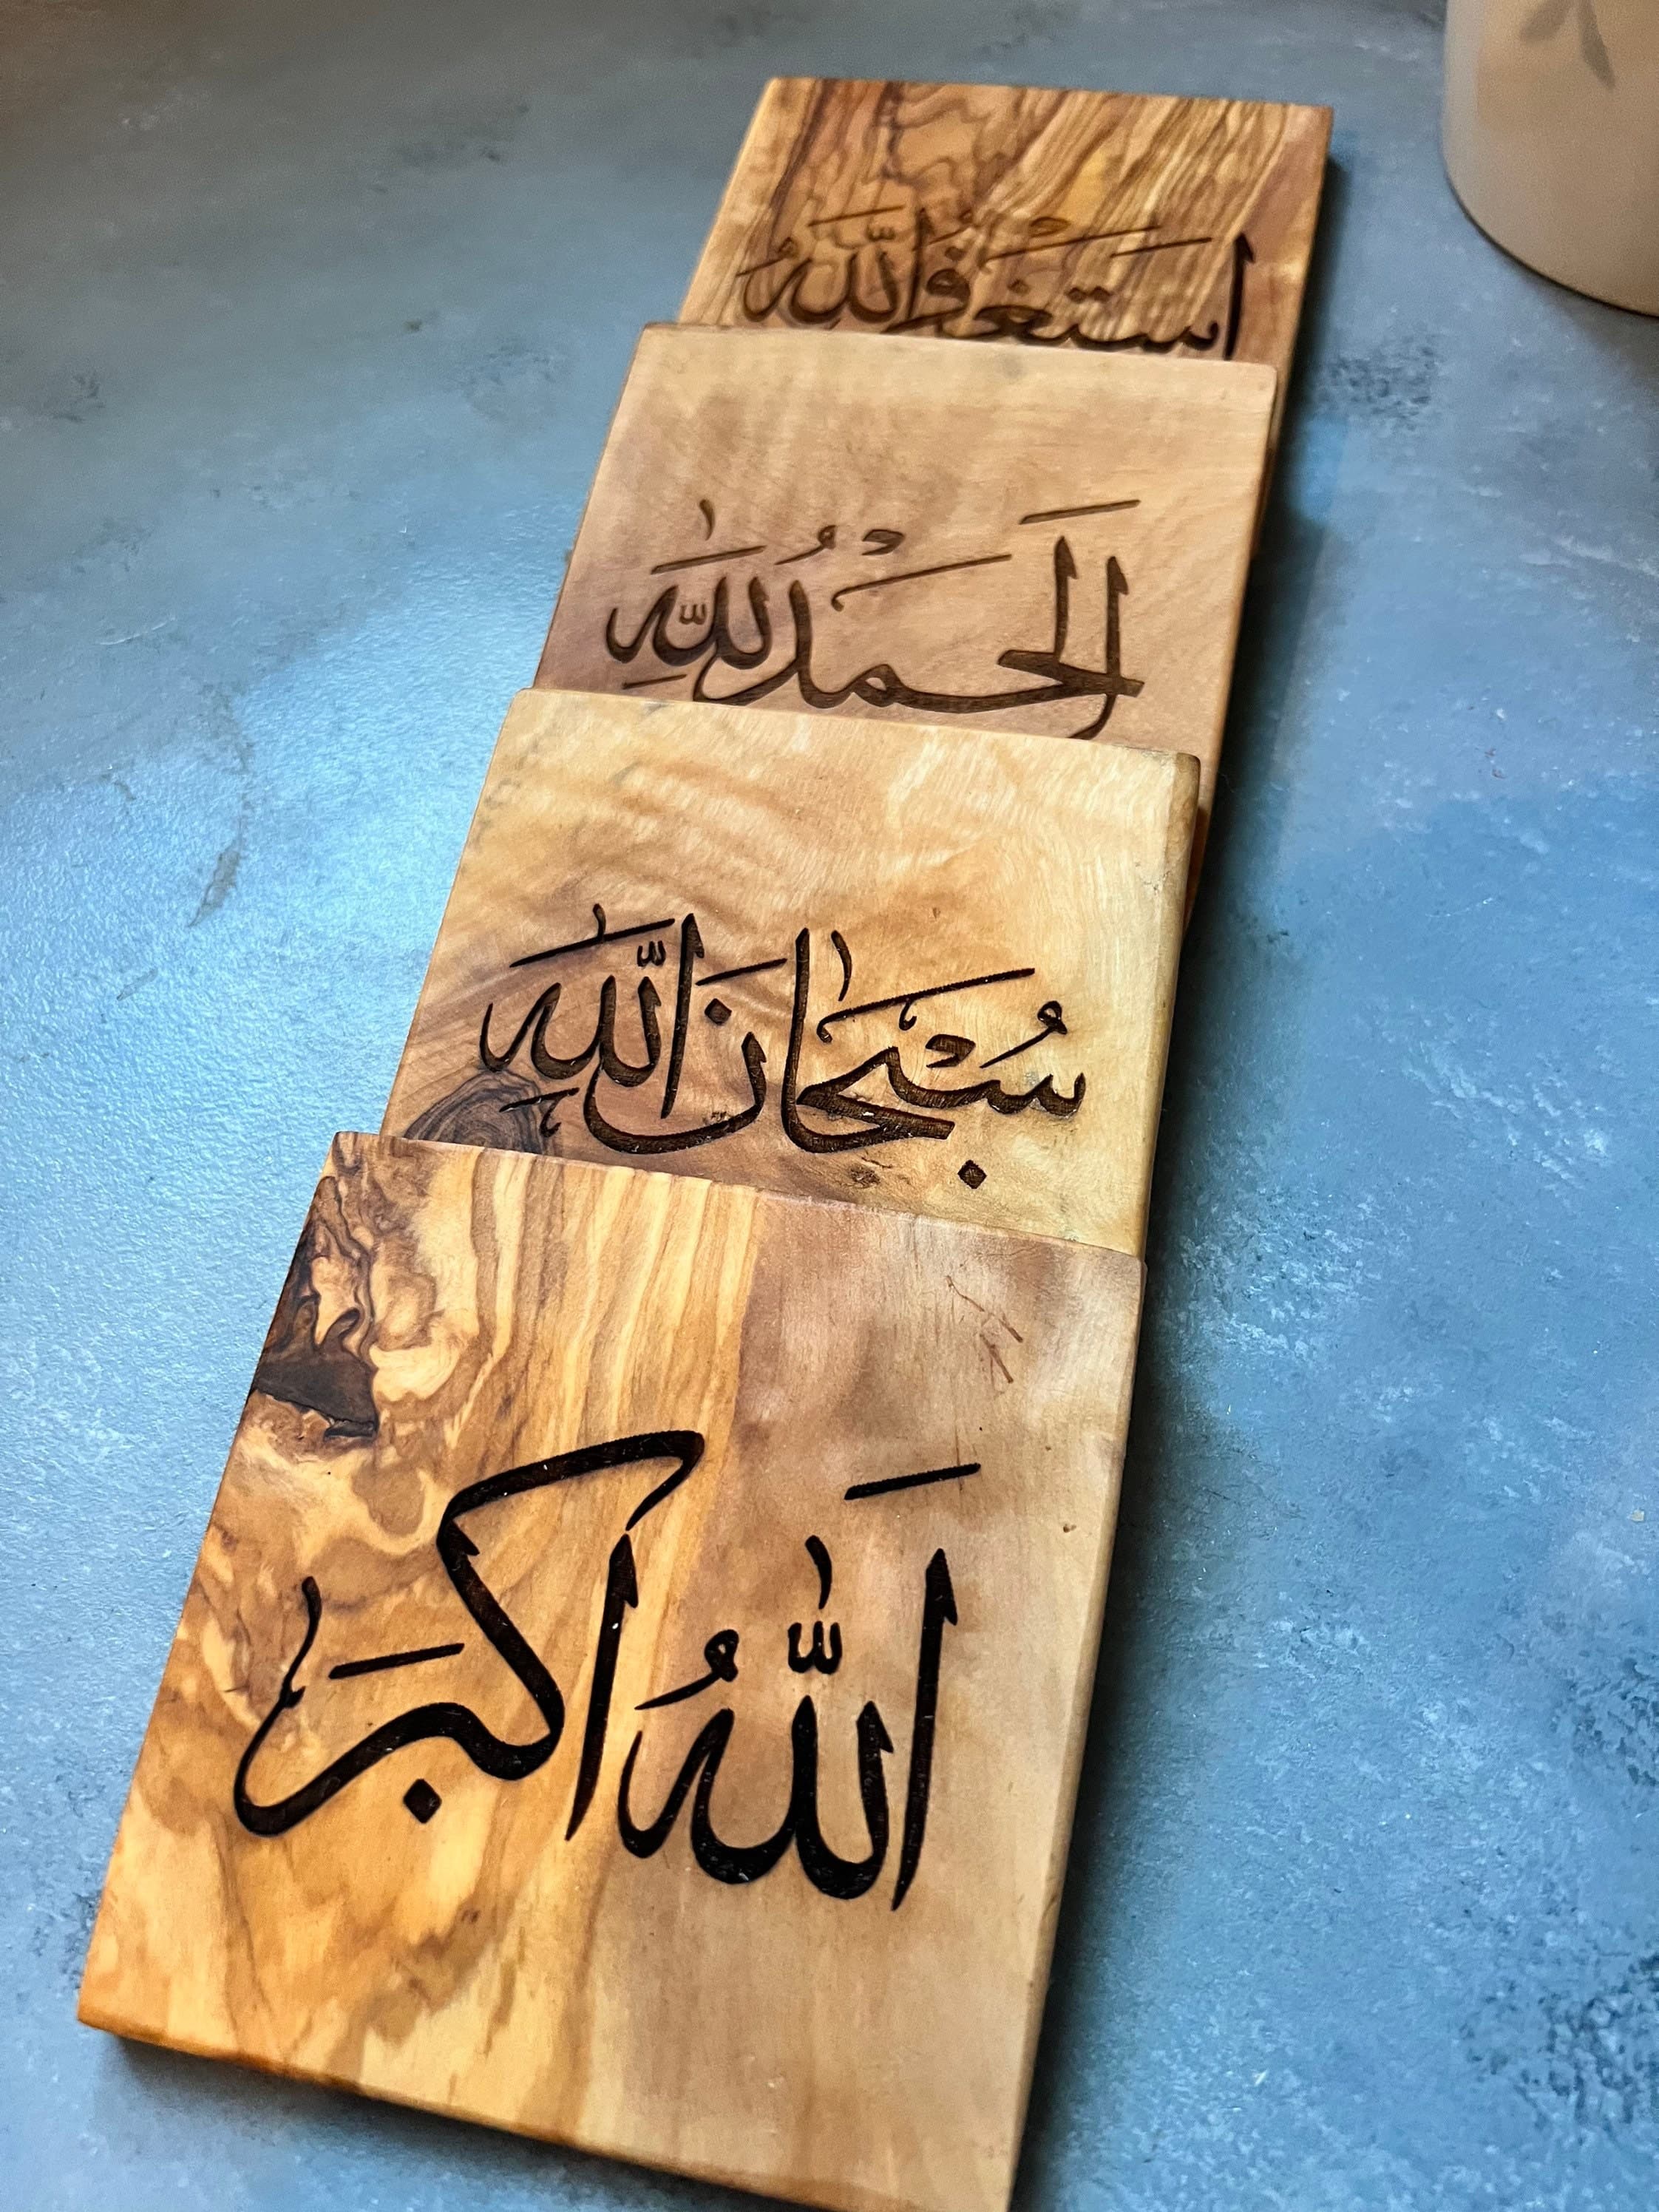 استغفر الله
الحمد لله
سبحان الله
الله اكبر